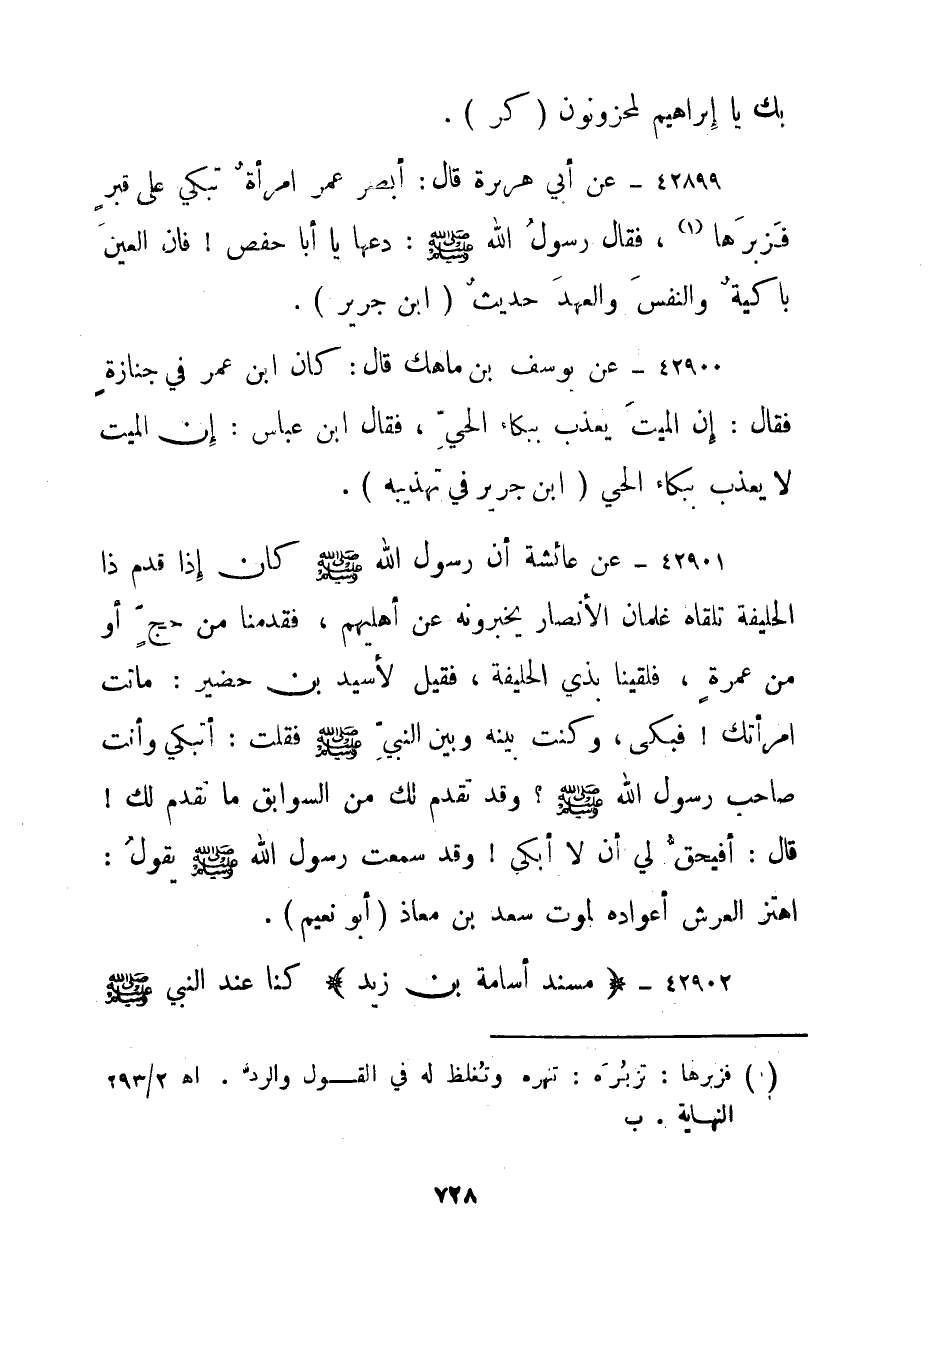 بك يا إبراهيم لمحزونون ( كر ) .
٤٢٨٩٩ ـ عن أبي هريرة قال : أبصر عمر امرأةً تبكي على قبرٍ
فَزبرَها (١) ، فقال رسولُ الله ﷺ : دعها يا أبا حفص ! فان العينَ
باكيةٌ والنفسَ والعهدَ حديثٌ ( ابن جرير ) .
٤٢٩٠٠ ـ عن يوسف بن ماهك قال : كان ابن عمر في جنازةٍ
فقال : إن الميتَ يعذب ببكاء الحيِّ ، فقال ابن عباس : إن الميت
لا يعذب ببكاء الحي ( ابن جرير في تهذيبه ) .
٤٢٩٠١ ـ عن عائشة أن رسول الله ﷺ كان إذا قدم ذا
الحليفة تلقاه غلمان الأنصار يخبرونه عن أهليهم ، فقدمنا من حجٍّ أو
من عمرةٍ ، فلقينا بذي الحليفة ، فقيل لأسيد بن حضير : ماتت
امرأتك ! فبكى ، وكنت بينه وبين النبيِّ ﷺ فقلت : أتبكي وأنت
صاحب رسول الله ﷺ ؟ وقد تقدم لك من السوابق ما تقدم لك !
قال : أفيحقُّ لي أن لا أبكي ! وقد سمعت رسول الله ﷺ يقولُ :
اهتز العرش أعواده لموت سعد بن معاذ ( أبو نعيم ) .
٤٢٩٠٢ ـ ﴿ مسند أسامة بن زيد ﴾ كنا عند النبي ﷺ
(١) فزبرها : تزبُرَه : تنهره وتُغلظ له في القول والردِّ . اه ٢٩٣/٢
النهاية . ب
٧٢٨